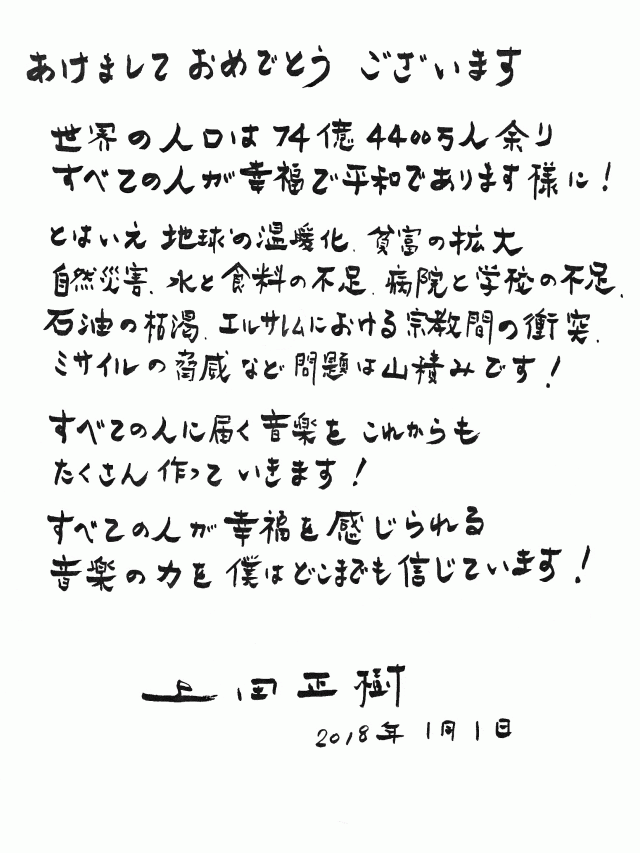 あけまして おめでとう ございます
世界の人口は 74億 4400万人 余り
すべての人が幸福で平和であります様に！
とはいえ 地球の温暖化、貧富の拡大
自然災害、水と食料の不足、病院と学校の不足、
石油の枯渇、エルサレムにおける宗教間の衝突、
ミサイルの脅威など問題は山積みです！
すべての人に届く音楽を これからも
たくさん作って いきます！
すべての人が幸福を感じられる
音楽の力を 僕はどこまでも信じています！
上田正樹
2018年 1月1日